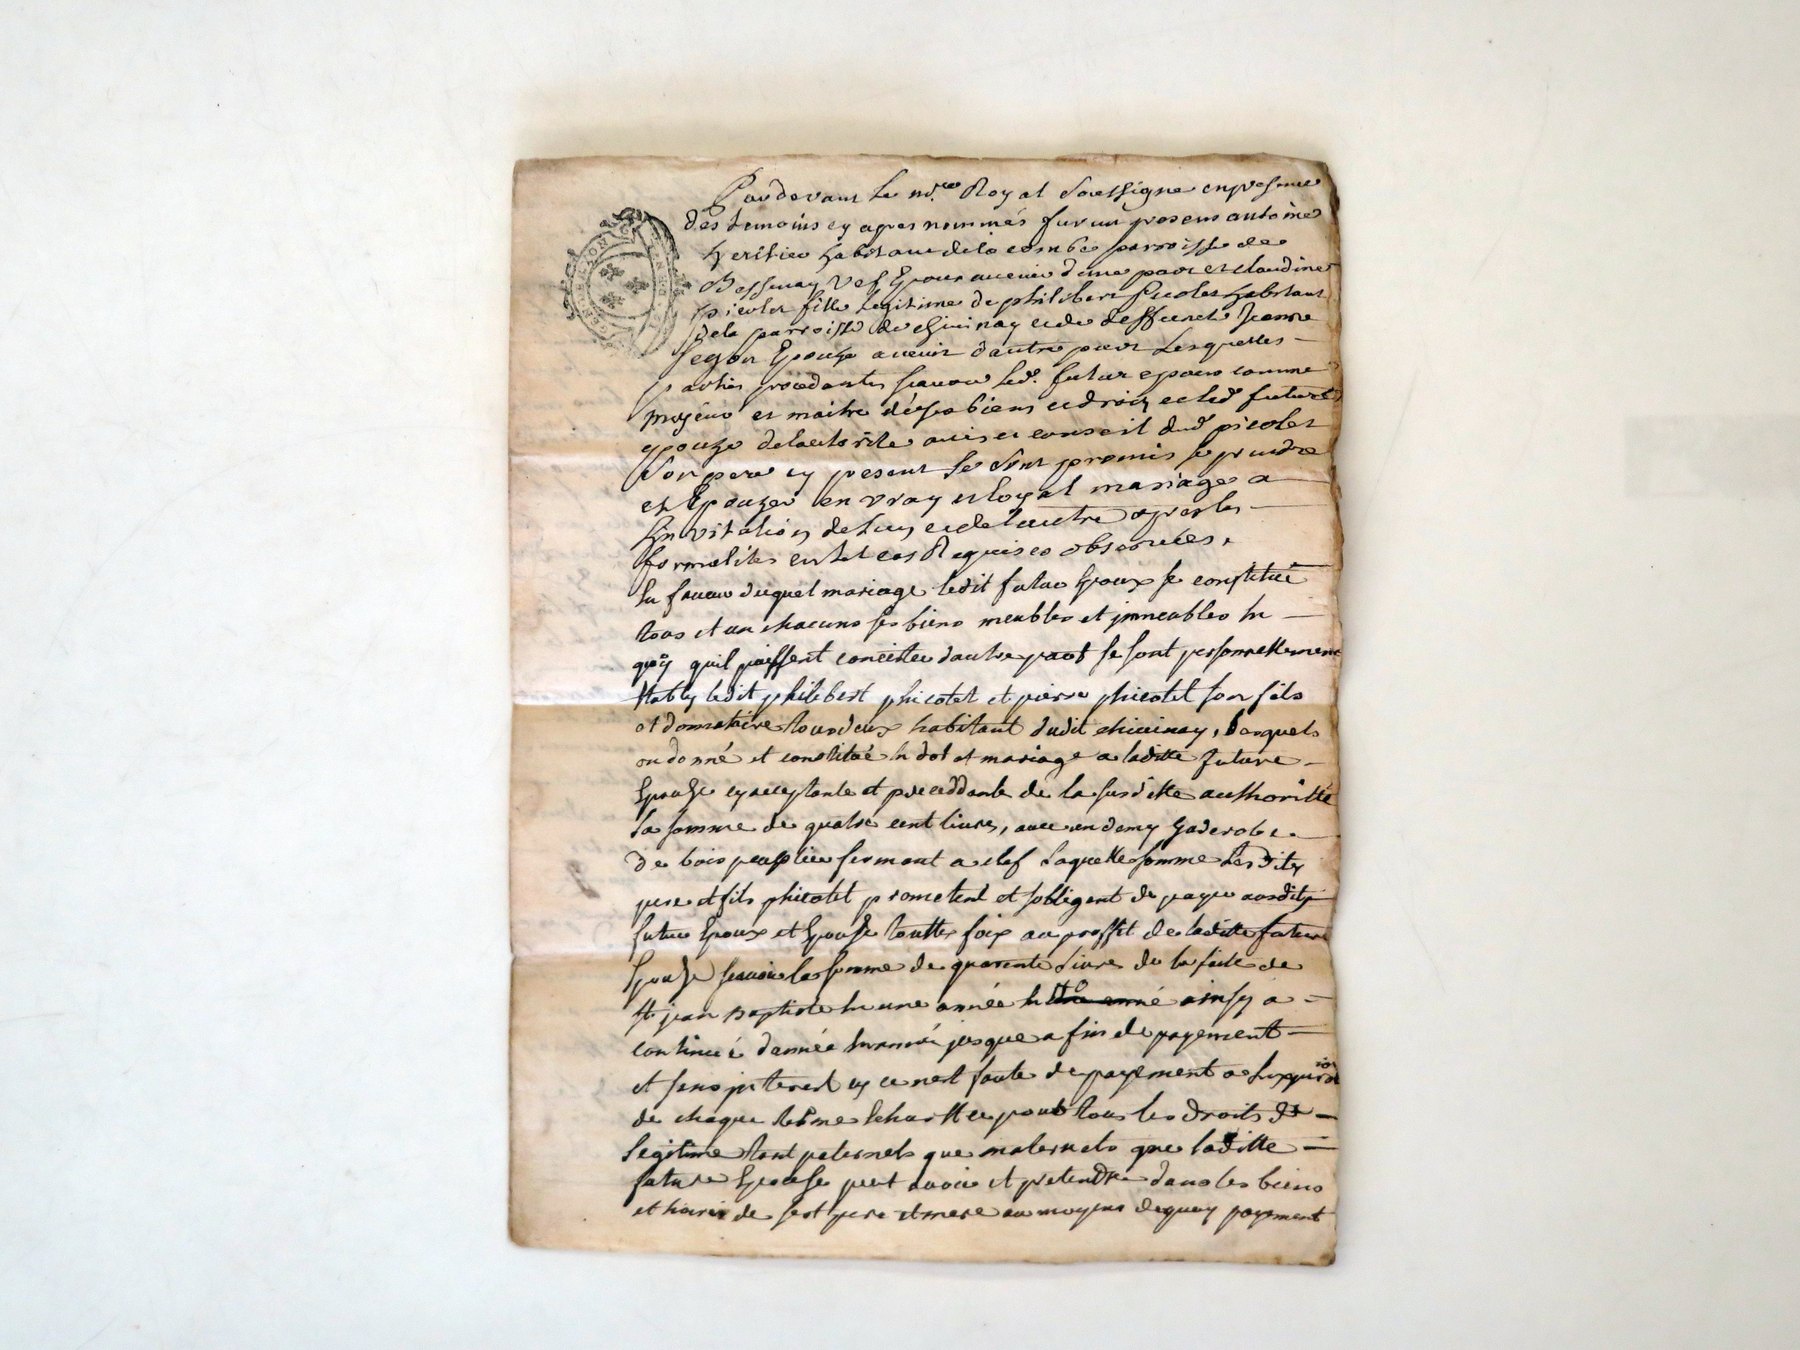 GENERALITÉ
Par devant le no.re Royal Soussigné en presence
des temoins cy apres nommés furent presens antoine
habitant de la combe parroisse de
Bessenay vef Epoux avenir d'une part et claudine
picolet fille legitime de philibert picolet habitant
de la parroisse de chivinay et de deffuncte Jeanne
Epouze avenir d'autre part Lesquelles
parties procedantes scavoir led. futur epoux comme
mojeur et maitre de ses biens et droits et lad. future
epouze de lautorité avis et conseil dud. picolet
Son pere cy present Se sont promis se prendre
et Epouzer en vray et loyal mariage a
linvitation de lun et de lautre apres les
formalites en tel cas Requises observées,
En faveur duquel mariage ledit futur Epoux se constitue
tous et un chacuns ses biens meubles et jmmeubles En
quoy quil puissent concister dautre part se sont personnellement
Etably ledit philibert phicolet et pierre phicolet son fils
et donnataire tous deux habitant dudit chivinay, Lesquels
on donné et constitué En dot et mariage a laditte future
Epouse cy acceptante et proceddante de la susditte authoritté
La somme de quatre cent livres, avec un demy gaderobe
de bois peuplier fermant a clef Laquelle somme Lesdits
pere et fils phicolet prometent et soblligent de payer ausdits
futur Epoux et Epouse touttes foix au proffit de laditte future
Epouse scavoir la somme de quarente Livres de la feste de
St jean Baptiste En une année ainsy a
continué d'année En année jusque a fin de payement
et sans jnterest cy ce nest faute de payement a Lexpiration
de chaque terme Echutte pour tous les droits de
Legitime tant paternels que maternels que laditte
future Epouse peut avoir et pretendre dans les biens
et hoirie de sest pere et mere au moyens dequoy payement